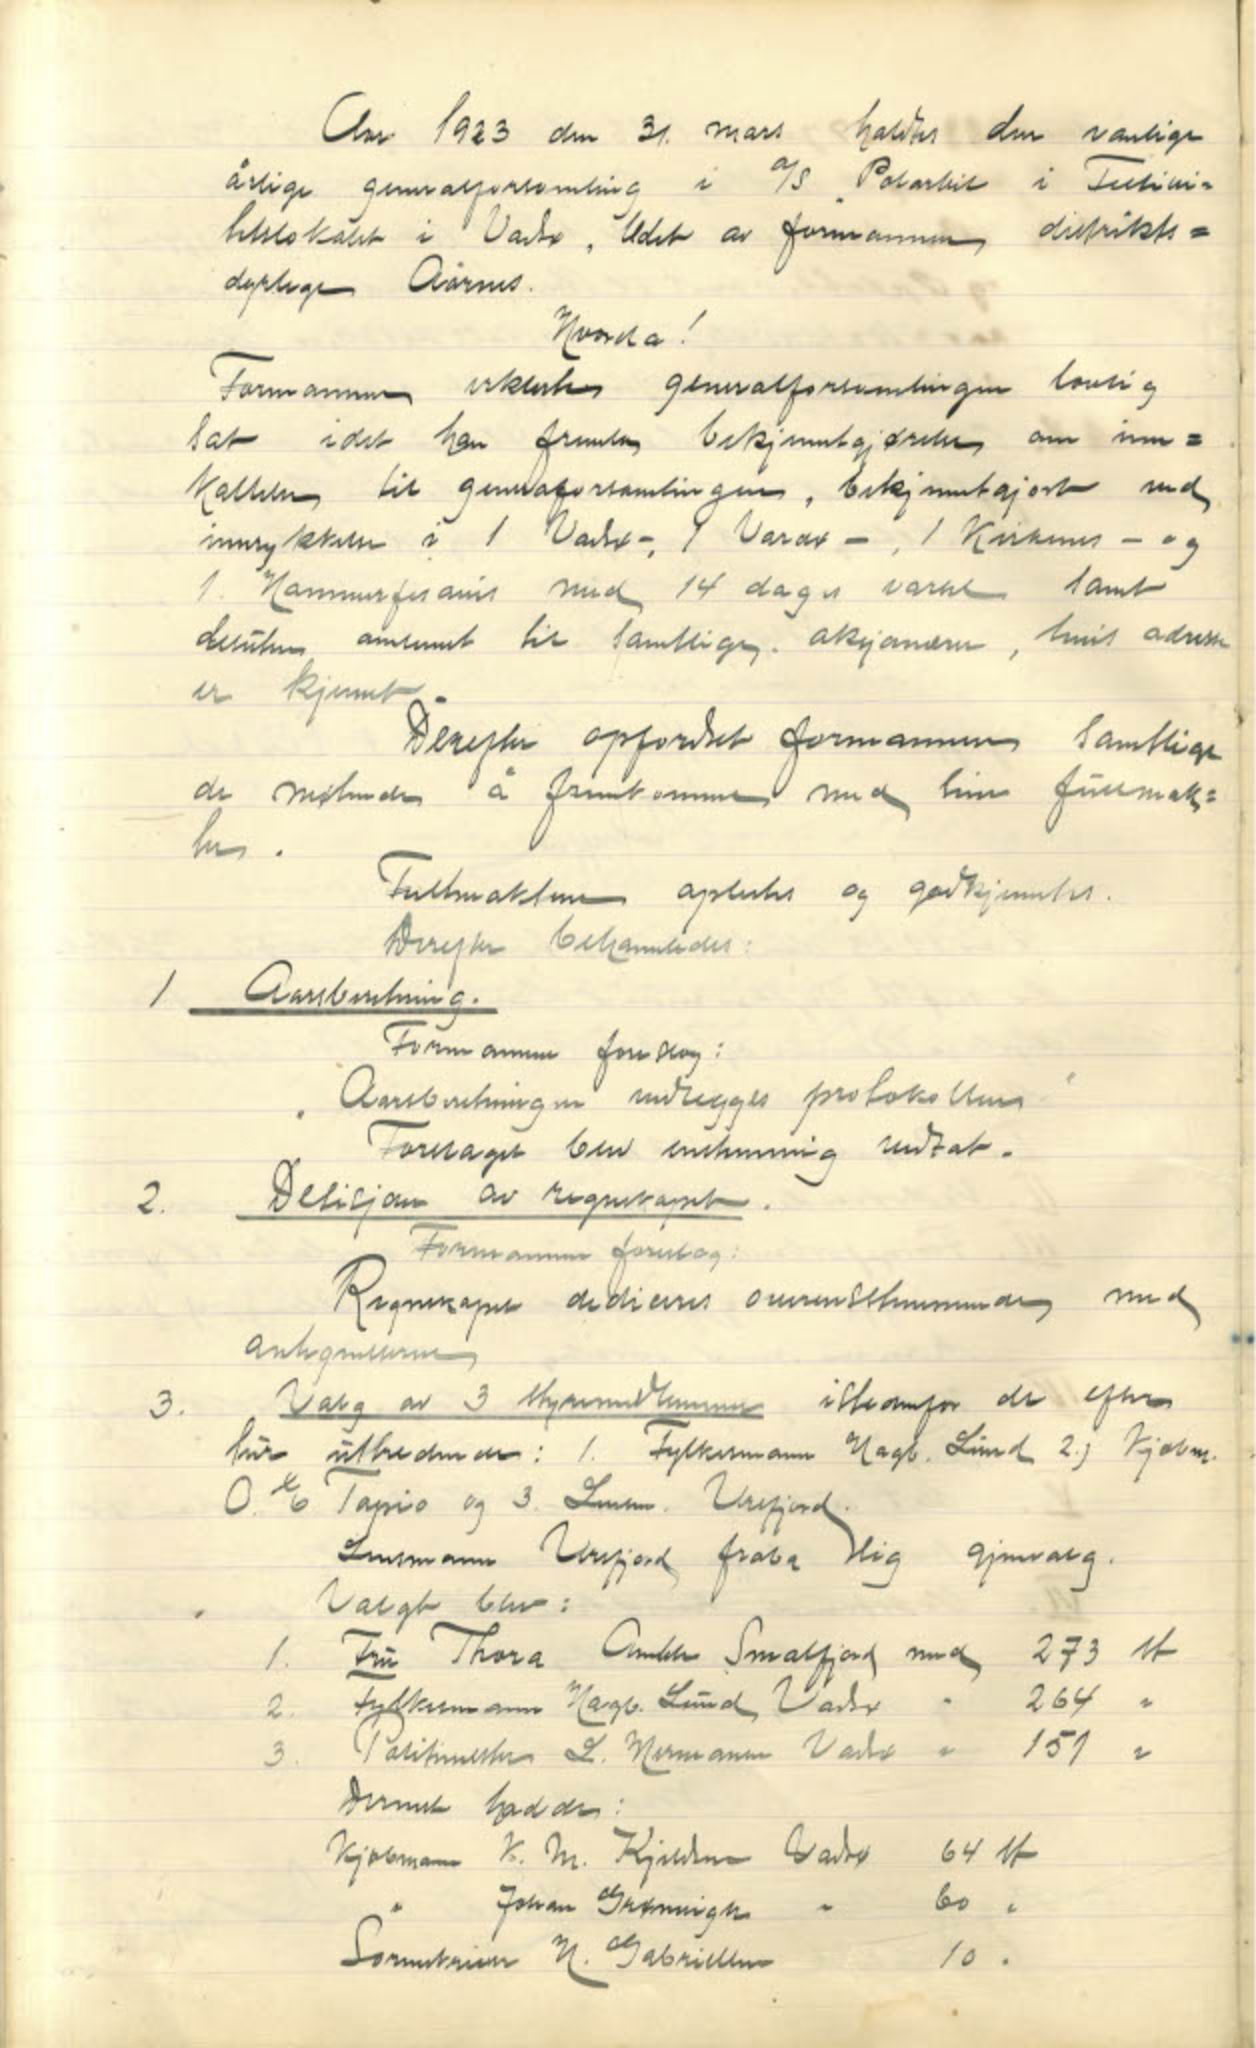 Aar 1923 den 31. mars holdtes den vanlige
årlige generalforsamling i A/S Polarbil i Festivi=
tetslokalet i Vadsø, ledet av formannen distrikts=
dyrlæge Aarnes.
Hvorda!
Formannen erklærte generalforsamlingen lovlig
sat idet han fremla bekjentgjørelse om inn=
kallelse til generalforsamlingen, bekjentgjort ved
innrykkelse i 1 Vadsø-, 1 Vardø-, 1 Kirkenes- og
1. Hammerfestavis med 14 dages varsel samt
desuten omsendt til samtlige aksjonærer, hvis adresse
er kjent.
Derefter opfordret formannen samtlige
de møtende å fremkomme med sine fullmak=
ter.
Fullmaktene oplestes og godkjentes.
Derefter behandledes:
1 Aarsberetning.
Formannen foreslog:
"Aarsberetningen vedlegges protokollen"
Forslaget blev enstemmig vedtat.
2. Desisjon av regnskapet.
Formannen foreslog:
Regnskapet decideres overensstemmende med
antegnelserne
3. Valg av 3 styremedlemmer istedenfor de efter
tur uttredende: 1. Fylkesmann Hagb. Lund 2.) Kjøbm.
O. E Tapio og 3. Lensm. Vesfjord.
Lensmann Vesfjord fraba sig gjenvalg.
Valgt blev:
1. Fru Thora Smalfjord med 273 st
2. Fylkesmann Hagb. Lund Vadsø " 264 "
3. Politimester L. Hermansen Vadsø " 151 "
Dernest hadde:
Kjøbmann K. M. Kjeldsen Vadsø 64 st
" Johan Grønvigh " 60 "
Sorenskriver H. Gabrielsen 10 "